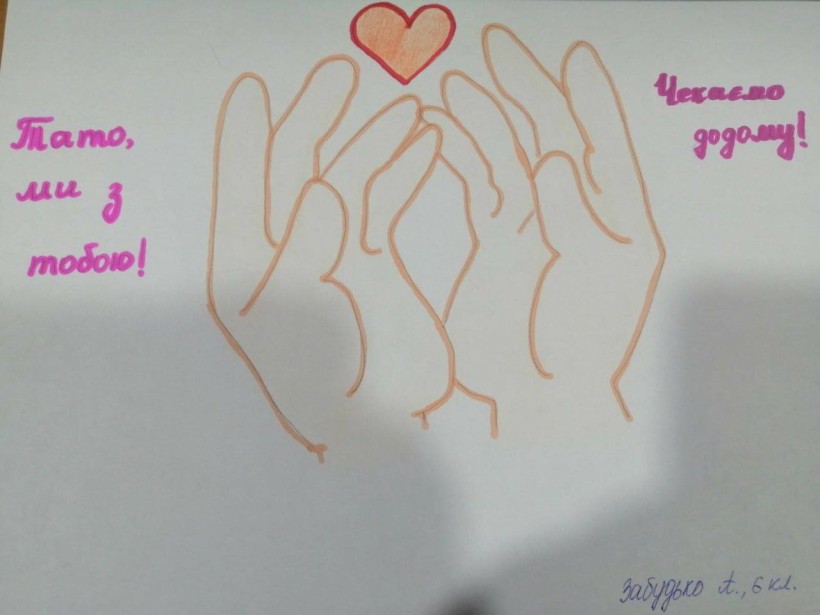 Тато,
ми з
тобою!
Чекаємо
додому!
Забудько А., 6 кл.